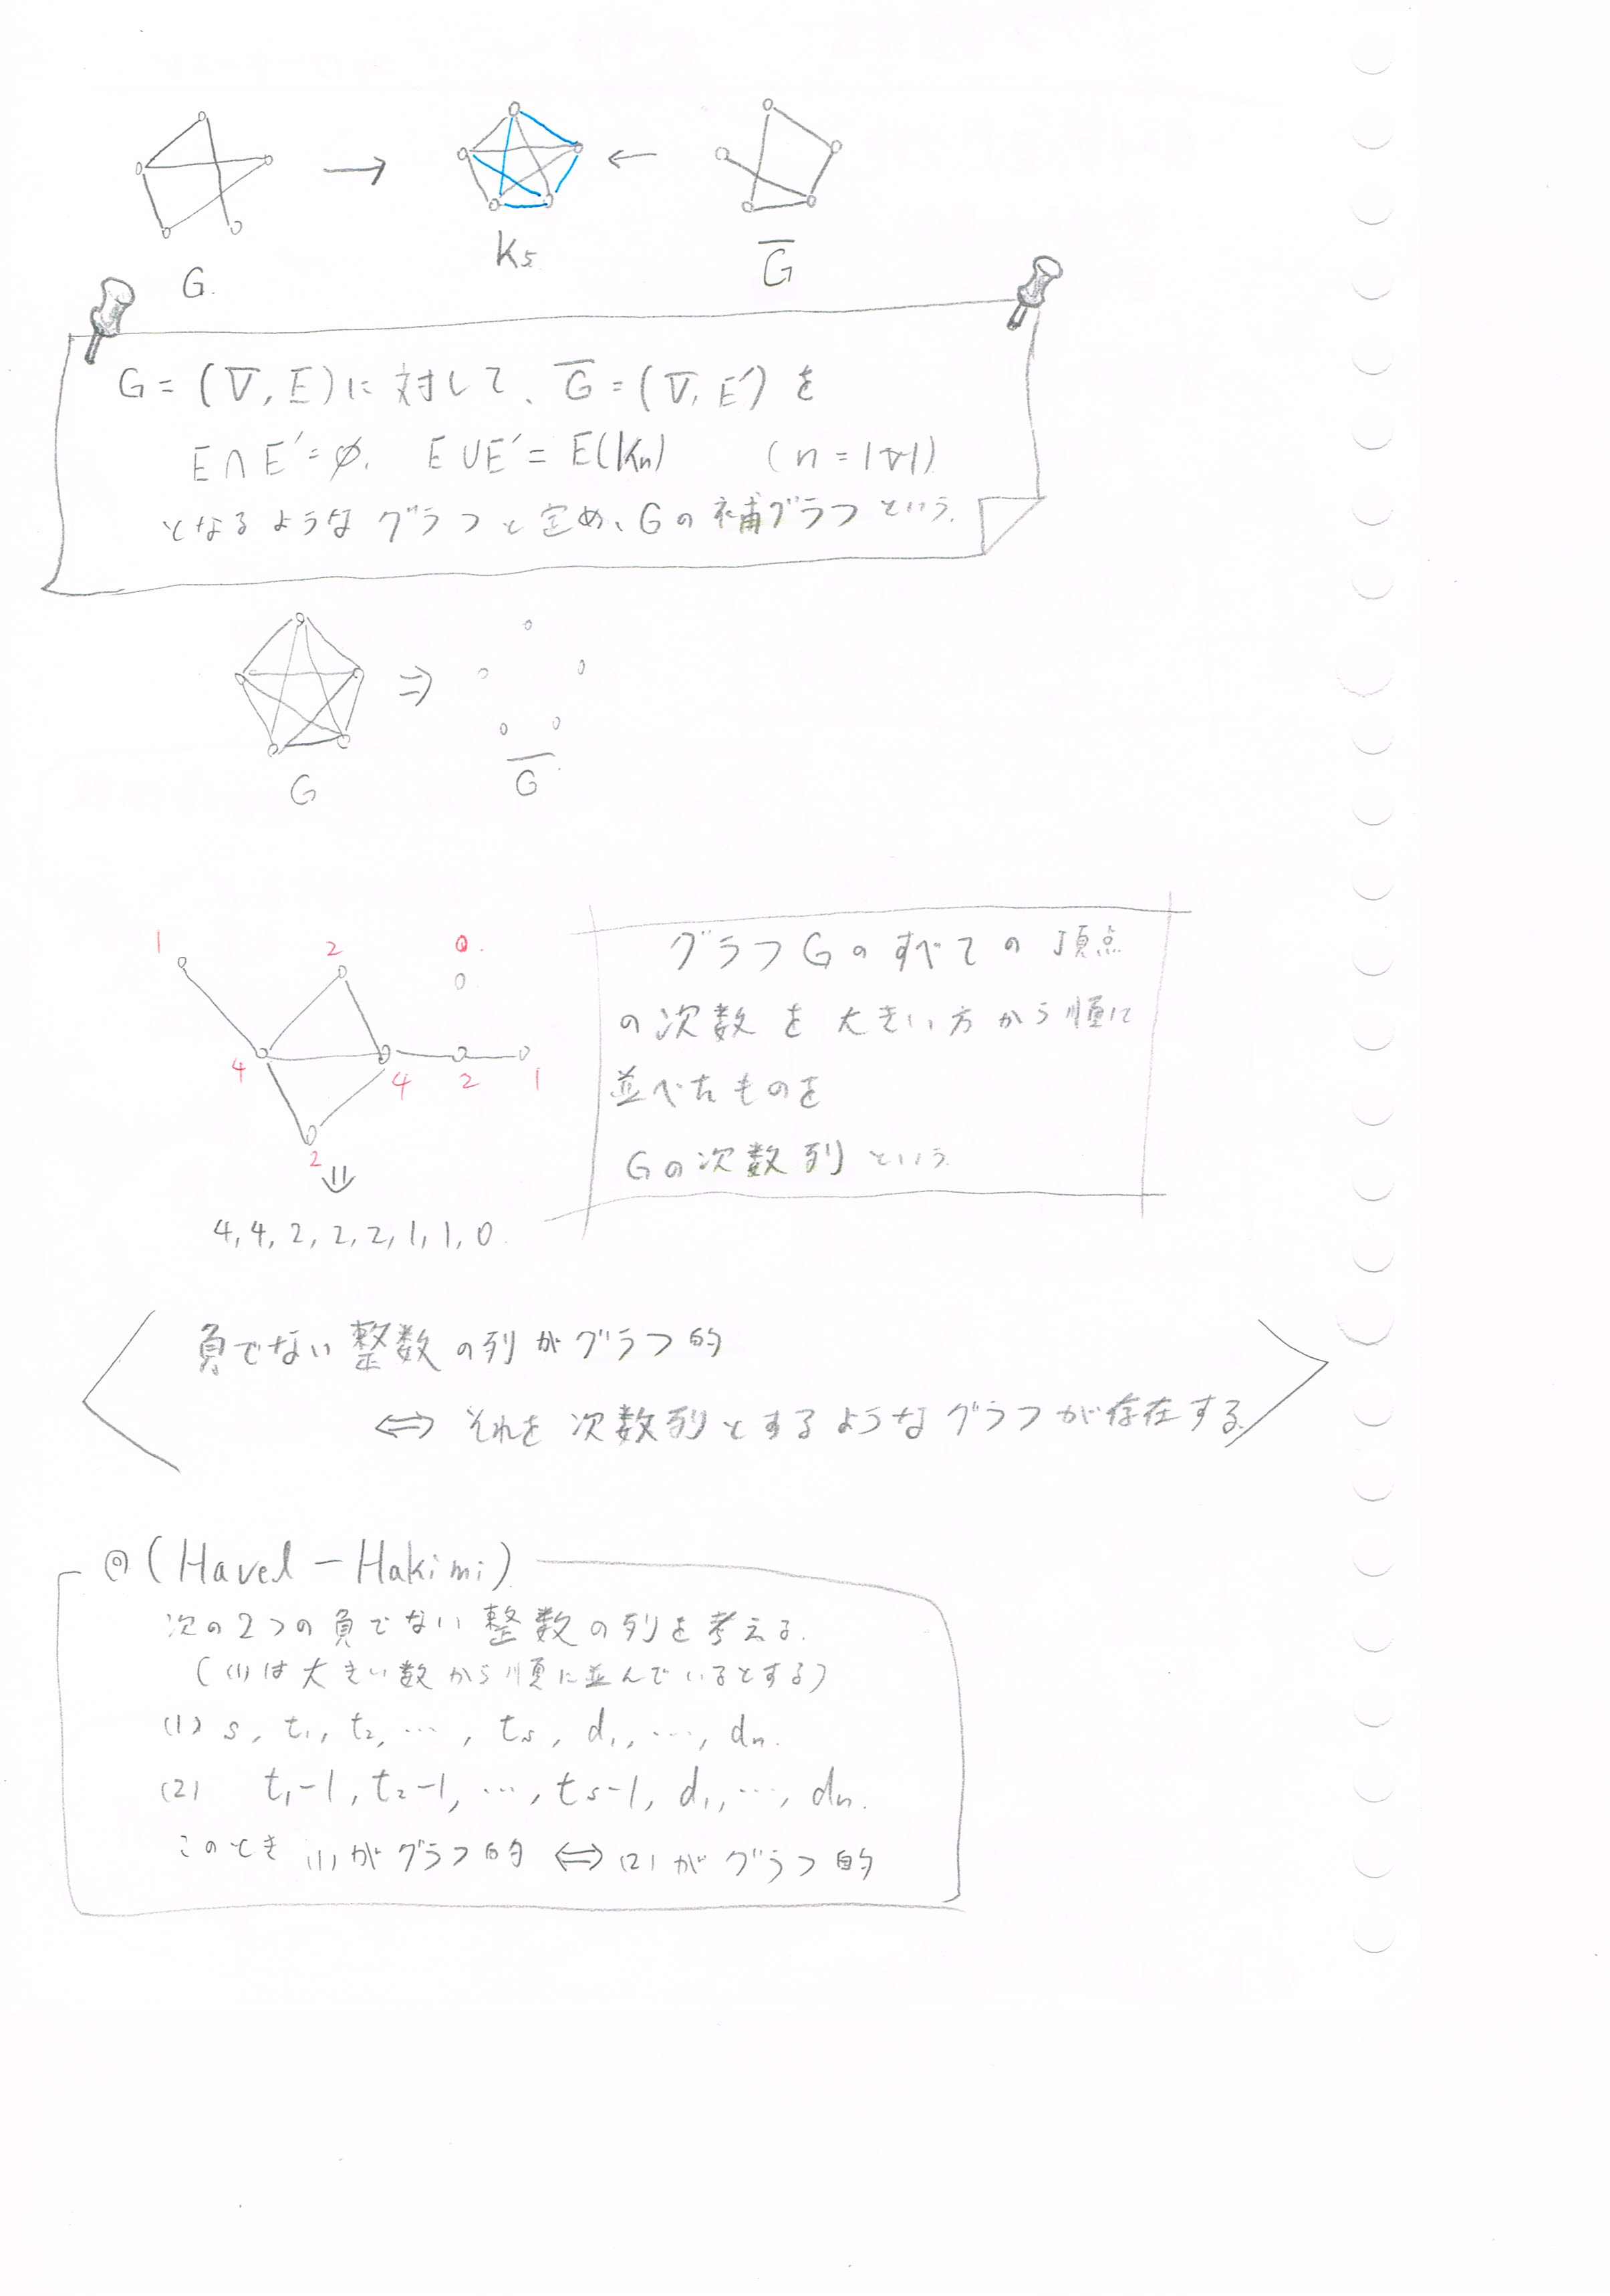 G.
K₅
G̅
G = (V, E)に対して、G̅ = (V, E′)を
E∩E′=∅. E∪E′= E(Kn) (n = |V|)
となるようなグラフと定め、Gの補グラフという.
G
G̅
1
2
0.
4
4
2
1
2
⇓
4, 4, 2, 2, 2, 1, 1, 0.
グラフGのすべての頂点
の次数を大きい方から順に
並べたものを
Gの次数列という
負でない整数の列がグラフ的
⇔ それを次数列とするようなグラフが存在する.
◎(Havel-Hakimi)
次の2つの負でない整数の列を考える.
((1)は大きい数から順に並んでいるとする)
(1) s, t₁, t₂, …, ts, d₁, …, dn.
(2) t₁-1, t₂-1, …, ts-1, d₁, …, dn.
このとき (1)がグラフ的 ⇔ (2)がグラフ的